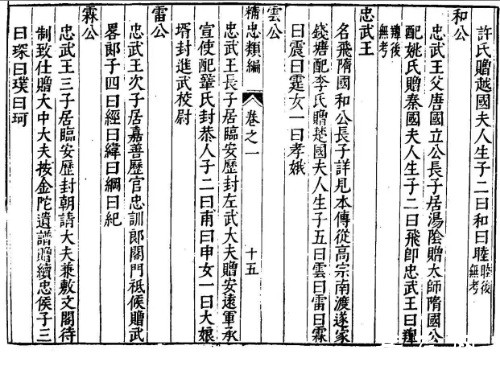 許氏贈越國夫人生子二曰和曰睦睦後無考
和公
忠武王父唐國立公長子居湯陰贈大師隋國公
配姚氏贈秦國夫人生子二曰飛卽忠武王曰翻翻後無考
忠武王
名飛隋國和公長子詳見本傳從高宗南渡遂家
錢塘配李氏贈楚國夫人生子五曰雲曰雷曰霖
曰震曰霆女一曰孝娥
雲公
精忠類編 卷之一 十五
忠武王長子居臨安歷封左武大夫贈安遠軍承
宣使配鞏氏封恭人子二曰甫曰申女一曰大娘
壻封進武校尉
雷公
忠武王次子居嘉善歷官忠訓郎閣門祗候贈武
畧郎子四曰經曰緯曰綱曰紀
霖公
忠武王三子居臨安歷封朝請大夫兼敷文閣待
制致仕贈大中大夫按金陀遺譜贈續忠侯子三
曰琛曰璞曰珂